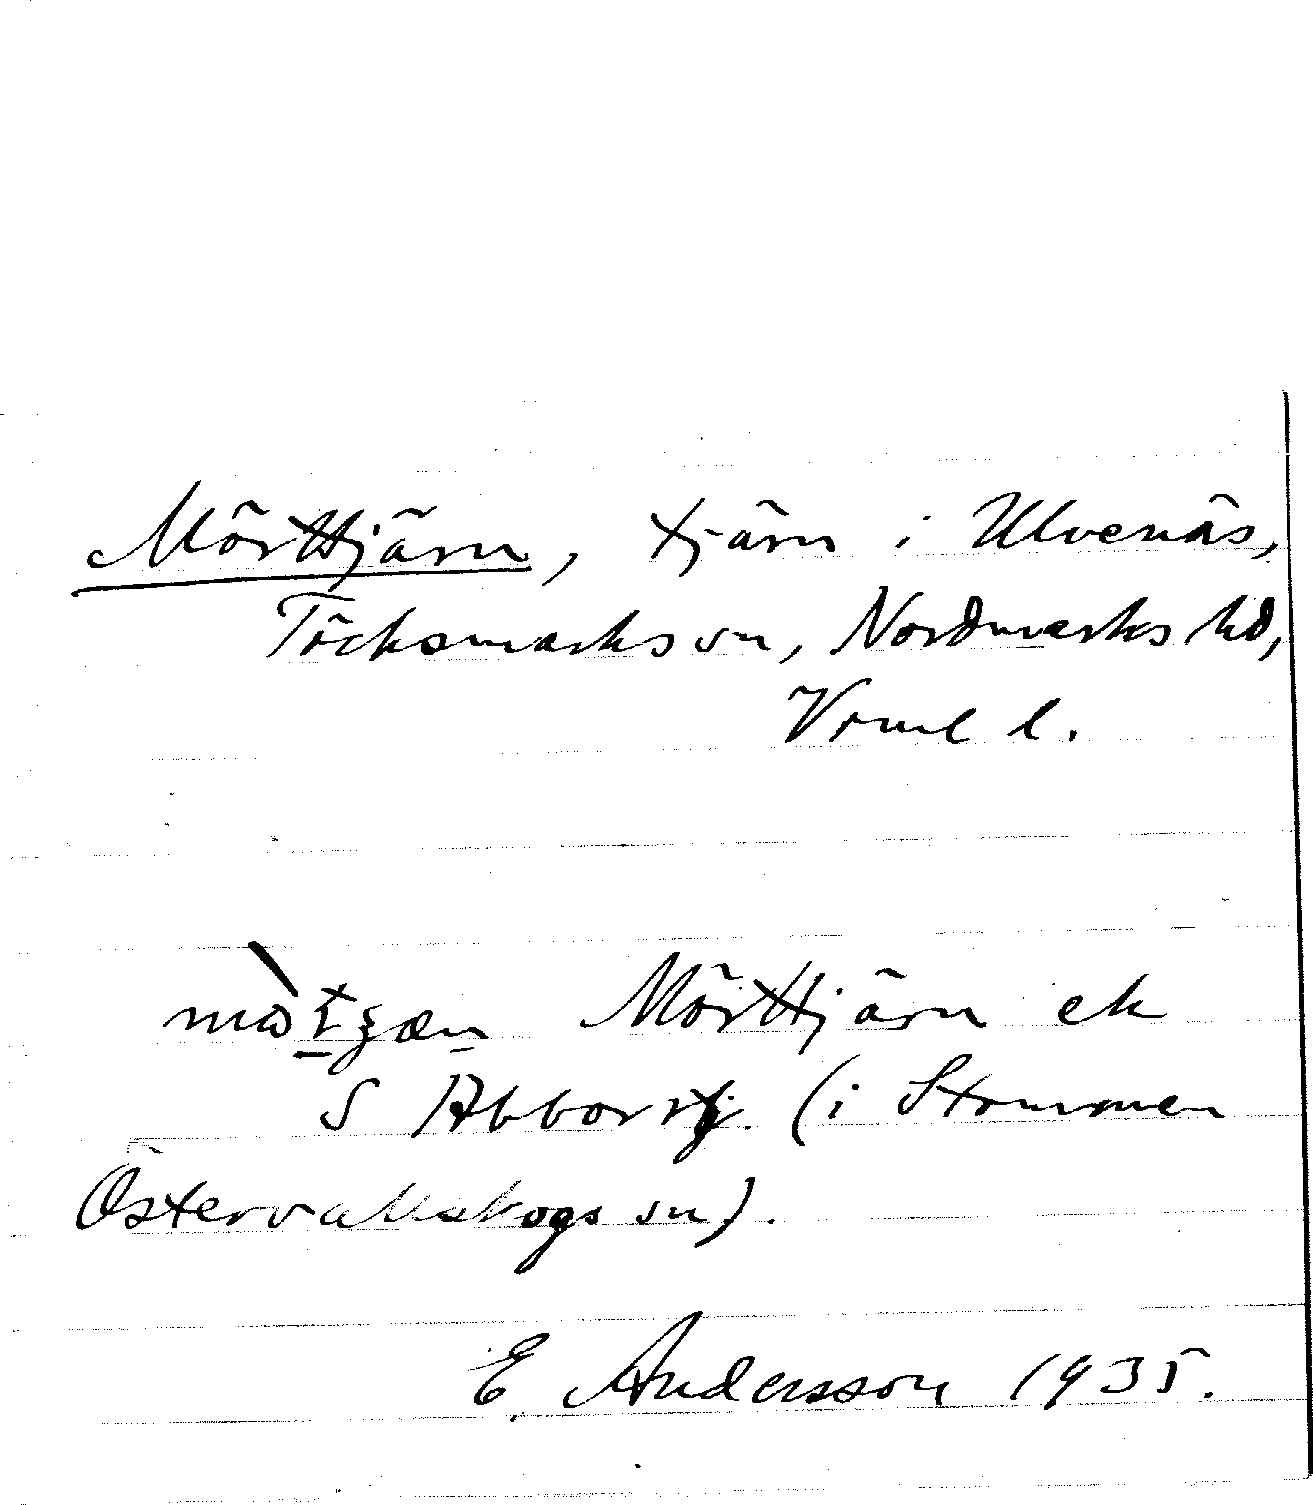 Mörttjärn, tjärn i Ulvenäs,
Töcksmarks sn, Nordmarks hd,
Vrml l.
Mörttjärn ek
S Abborrtj. (i Stommen
Östervallskogs sn).
E. Andersson 1935.